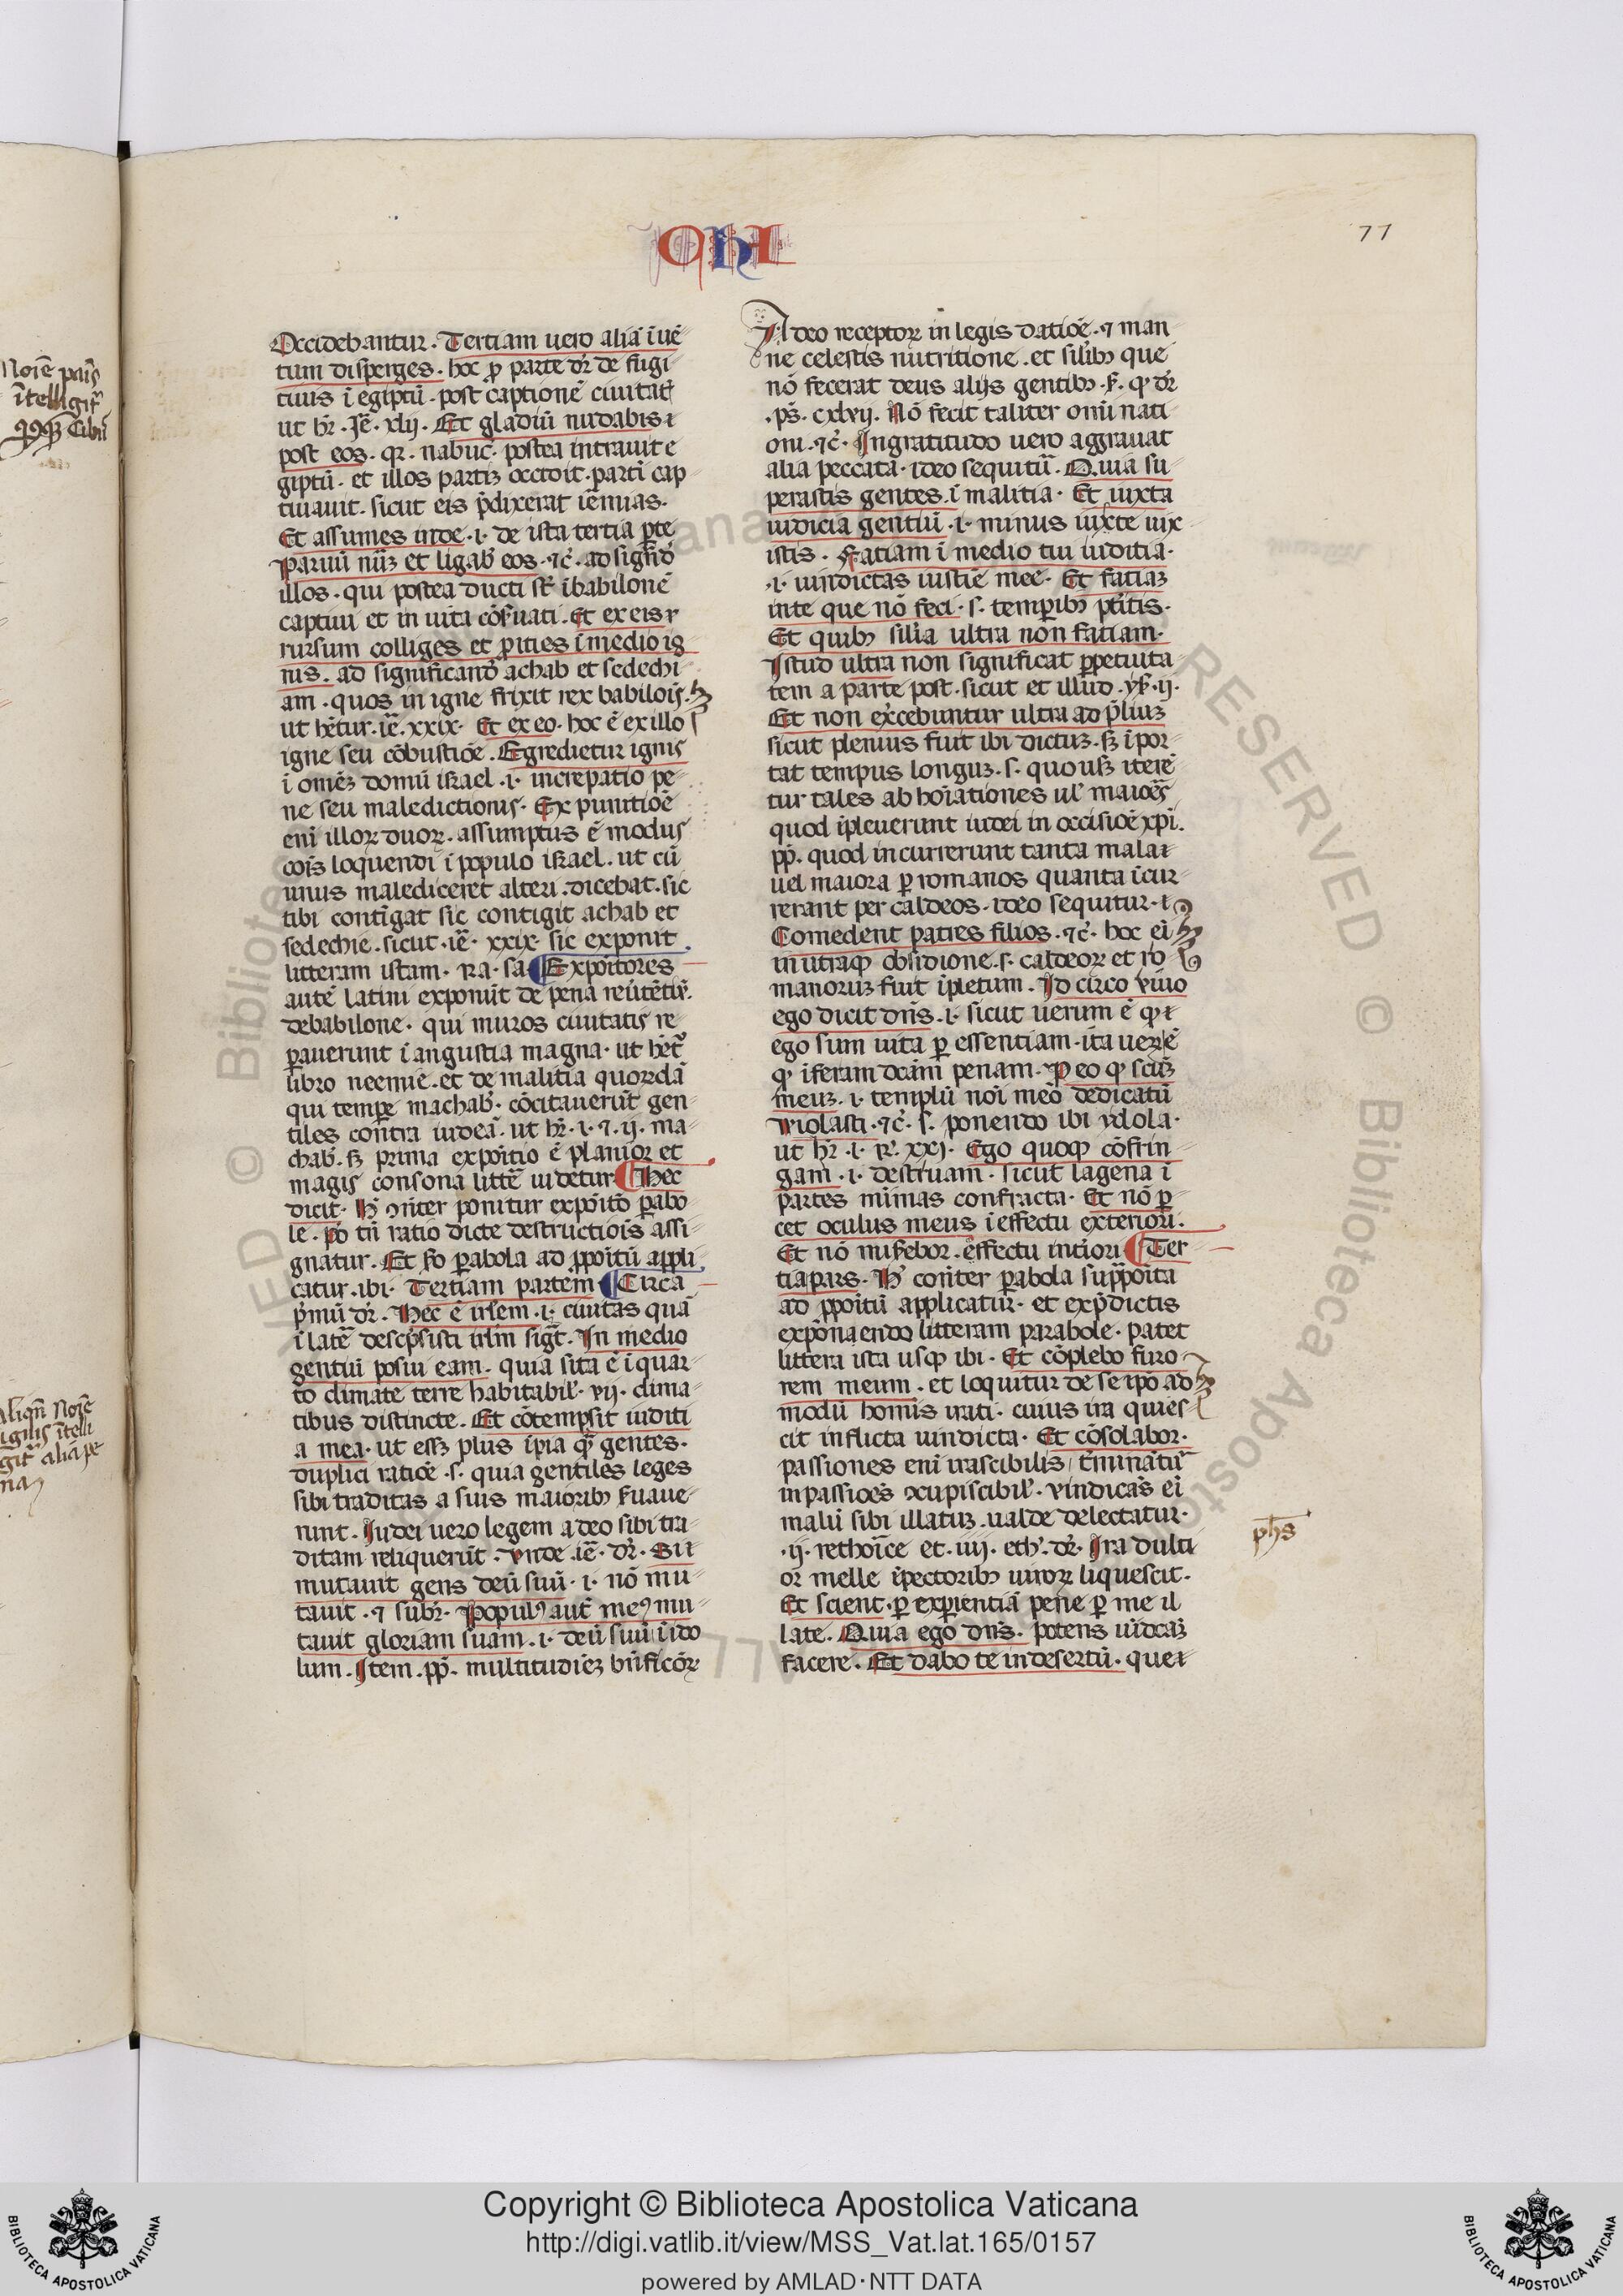 QHL
77
Occidebantur. Tertiam uero aliā ī uē
tum disperges. hoc ꝓ parte dr̄ de fugi
tiuis ī egiptū. post captionē ciuitatꝭ
ut hr̄. Jē. xlij. Et gladiū nudabis
post eos. qr. nabuc̄. postea intrauit e
giptū. et illos partīꝫ occidit. partī cap
tiuauit. sicut eis p̄dixerat iēmias.
Et assumes inde. i. de ista tertia ꝑte
Paruū nūꝫ et ligab̄ eos. ⁊c̄. ad signd̄
illos. qui postea ducti st̄ ī babilonē
captiui et in uita cōẜuati. Et ex eis
rursum colliges et ꝓities ī medio ig
nis. ad significand̄ achab et sedechi
am. quos in igne frixit rex babilois̄.
ut hētur. iē. xxix. Et ex eo. hoc ē ex illo
igne seu cōbustiōe. Egredietur ignis
ī omēꝫ domū israel. i. increpatio pe
ne seu maledictionis. Ex punitiōe
enī illoꝝ duoꝝ. assumptus ē modus
cois̄ loquendi ī populo israel. ut cū
unus malediceret alteri. dicebat. sic
tibi contīgat sic contigit achab et
sedechie. sicut. iē. xxix. sic exponit
litteram istam. ra. sa. Expoītores
autē latini exponūt de pena reūtētiū.
de babilone. qui muros ciuitatis re
ꝑauerunt ī angustia magna. ut hēt᷑
libro neemie. et de malitia quorꝝdā
qui tempe machab̄. cōcitauerūt gen
tiles contra iudeā. ut hr̄. i. ⁊. ij. ma
chab̄. sꝫ prima expoītio ē planior et
magis consona littē uidetur. Hec
dicit. H̄ ꝯn̄ter ponitur expoītō ꝑabo
le. Po tn̄ ratio dicte destructiois̄ assi
gnatur. Et ẜo ꝑabola ad ꝓpoītū appli
catur. ibi. Tertiam partem Circa
p̄mū dr̄. Hec ē irlem. i. ciuitas quā
ī latē descp̄sisti irlm sigt̄. In medio
gentiū posui eam. quia sita ē ī quar
to climate terre habitabil̄. vij. clima
tibus distincte. Et cōtempsit iuditi
a mea. ut essꝫ plus īpia qꝫ gentes.
duplici ratiōe. s. quia gentiles leges
sibi traditas a suis maioribꝫ ẜuaue
runt. Iudei uero legem a deo sibi tra
ditam reliquerūt. vnde. iē. dr̄. Si
mutauit gens deū suū. i. nō mu
tauit. ⁊ subr̄. Populꝰ aut̄ meꝰ mu
tauit gloriam suam. i. deū suū ī ido
lum. Item. ꝓp̄. multitudiēꝫ bn̄ficōꝝ
A deo receptoꝝ in legis datiōe. ⁊ man
ne celestis nutritione. et silībꝫ que
nō fecerat deus alijs gentibꝫ. ẜ. ꝙ dr̄
.ps̄. cxlvij. Nō fecit taliter omī nati
oni. ⁊c̄. Ingratitudo uero aggrauat
alia peccata. ideo sequitur̄. Quia su
perastis gentes. ī malitia. Et iuxta
iudicia gentiū. i. minus iuxte uix
istis. Fatiam ī medio tui iuditia.
.i. uindictas iustiē mee. Et fatiaꝫ
in te que nō feci. s. temꝑibꝫ pt̄itis.
Et quibꝫ silīa ultra non fatiam.
Istud ultra non significat ꝑpetuita
tem a parte post. sicut et illud. yẜ. ij.
Et non ex̄cebuntur ultra ad p̄liuꝫ
sicut plenius fuit ibi dictuꝫ. sꝫ īpor
tat tempus longuꝫ. s. quousꝫ iterē
tur tales abhoiātiones ul̄ maioēs̄
quod īpleuerunt iudei in occisiōe xpī.
ꝓp̄. quod incurrerunt tanta mala
uel maiora ꝑ romanos quanta īcur
rerant per caldeos. ideo sequitur.
Comedent patres filios. ⁊c̄. hoc eī
in utraqꝫ obsidione. s. caldeoꝝ et ro
manoruꝫ fuit īpletum. Id circo viuo
ego dicit dn̄s. i. sicut uerum ē ꝙ
ego sum uita ꝑ essentiam. ita ueꝝ ē
ꝙ īferam dcām penam. Peo ꝙ scūꝫ
meuꝫ. i. templū noī meo dedicatū
Violasti. ⁊c̄. s. ponendo ibi ydola.
ut hr̄. i. R̄. xxj. Ego quoqꝫ cōfrin
gam. i. destruam. sicut lagena ī
partes mīmas confracta. Et nō ꝑ
cet oculus meus ī effectu exteriori.
Et nō miẜebor. effectu intīori Ter
tia pars. H̄ conīter ꝑabola supp̄oīta
ad ꝓpoītū applicatur. et exp̄dictis
expōna endo litteram parabole. patet
littera ista usqꝫ ibi. Et cōplebo furo
rem meum. et loquitur de se ip̄o ad
modū homīs irati. cuius ira quies
cit inflicta uindicta. Et cōsolabor.
passiones enī irascibilis t̄minātur̄
in passiōes ꝯcupiscibil̄. vindicās eī
malū sibi illatuꝫ. ualde delectatur.
.ij. rethoīce et. iiij. eth̄. dr̄. Ira dulci
or melle īpectoribꝫ uiroꝝ liquescit.
Et scient. ꝑ exꝑientiā pene ꝑ me il
late. Quia ego dn̄s. potens uīdcāꝫ
facere. Et dabo te in desertū. que
Noīe patīs
ītelligit᷑
Aliqn̄ Noīe
ītelli
git᷑ alia pe
na
phs̄
BIBLIOTECA APOSTOLICA VATICANA
Copyright © Biblioteca Apostolica Vaticana
http://digi.vatlib.it/view/MSS_Vat.lat.165/0157
powered by AMLAD·NTT DATA
BIBLIOTECA APOSTOLICA VATICANA